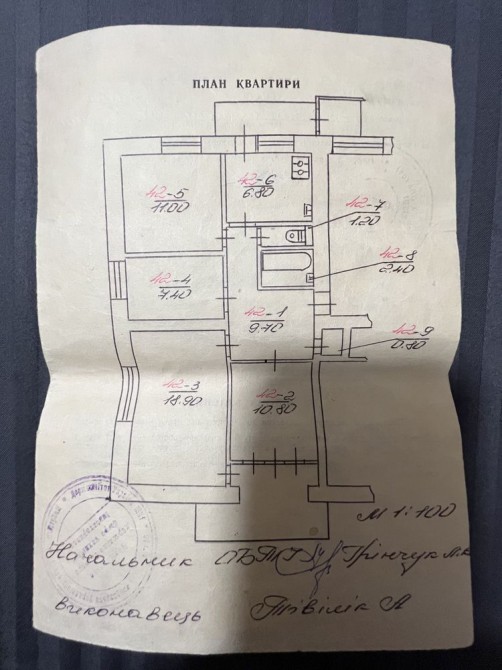 ПЛАН КВАРТИРИ
42-6
6.80
42-5
11.00
42-7
1.20
42-8
2.40
42-4
7.40
42-1
9.70
42-9
0.80
42-3
18.90
42-2
10.80
М 1:100
Начальник
виконавець